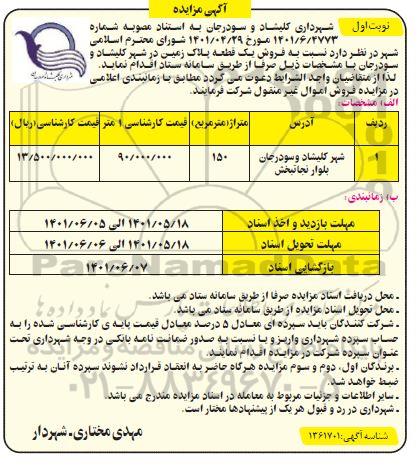 آگهی مزایده
نوبت اول
شهرداری کلیشاد و سودرجان به استناد مصوبه شماره
۱۴۰۱/۶/۴۷۷۳ مورخ ۱۴۰۱/۰۲/۲۹ شورای محترم اسلامی
شهر در نظر دارد نسبت به فروش یک قطعه پلاک زمین در شهر کلیشاد و
سودرجان با مشخصات ذیل صرفا از طریق سامانه ستاد اقدام نماید.
لذا از متقاضیان واجد الشرایط دعوت می گردد مطابق با زمانبندی اعلامی
در مزایده فروش اموال غیر منقول شرکت فرمایند.
الف: مشخصات:
ردیف آدرس متراژ(مترمربع) قیمت کارشناسی ۱ متر قیمت کارشناسی(ریال)
۱ شهر کلیشاد وسودرجان بلوار نجابتبخش ۱۵۰ ۹۰/۰۰۰/۰۰۰ ۱۳/۵۰۰/۰۰۰/۰۰۰
ب: زمانبندی:
مهلت بازدید و اخذ اسناد ۱۴۰۱/۰۵/۱۸ الی ۱۴۰۱/۰۶/۰۵
مهلت تحویل اسناد ۱۴۰۱/۰۵/۱۸ الی ۱۴۰۱/۰۶/۰۶
بازگشایی اسناد ۱۴۰۱/۰۶/۰۷
ـ محل دریافت اسناد مزایده صرفا از طریق سامانه ستاد می باشد.
ـ محل تحویل اسناد مزایده از طریق سامانه ستاد می باشد.
ـ شرکت کنندگان باید سپرده ای معادل ۵ درصد معادل قیمت پایه ی کارشناسی شده را به
حساب سپرده شهرداری واریز و یا نسبت به صدور ضمانت نامه بانکی در وجه شهرداری تحت
عنوان سپرده شرکت در مزایده اقدام نمایند.
ـ برندگان اول، دوم و سوم مزایده هرگاه حاضر به انعقاد قرارداد نشوند سپرده آنان به ترتیب
ضبط خواهد شد.
ـ سایر اطلاعات و جزئیات مربوط به معامله در اسناد مزایده مندرج می باشد.
ـ شهرداری در رد و قبول هر یک از پیشنهادها مختار است.
مهدی مختاری ـ شهردار
شناسه آگهی: ۱۳۶۱۷۰۱
ParsNamadData
۰۲۱-۸۸۳۴۹۶۷۰-۵